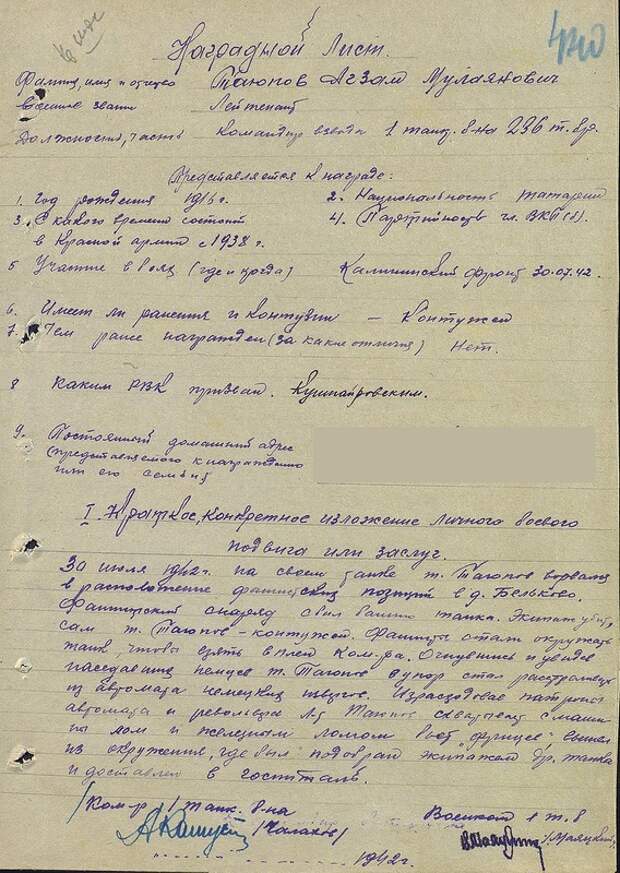 440
Наградной Лист.
Фамилия, имя и отчество Таюпов Агзам Мулаянович
военное звание Лейтенант
Должность, часть Командир взвода 1 танк. б-на 236 т. бр.
Представляется к награде:
1. Год рождения 2. Национальность татарин
3. С какого времени состоит 4. Партийность чл. ВКП(б).
в Красной армии с 1938 г.
5 Участие в боях (где и когда) Калининский фронт 30.07.42.
6. Имеет ли ранения и контузии – Контужен
7. Чем ранее награжден (за какие отличия) Нет.
8 Каким РВК призван. Кушнаровским.
9. Постоянный домашний адрес
(представляемого к награждению
или его семьи
I Краткое, конкретное изложение личного боевого
подвига или заслуг.
30 июля 1942 г. на своем танке т. Таюпов ворвался
в расположение фашистских позиций в д. Бельково.
Фашистский снаряд сбил башню танка. Экипаж убит,
сам т. Таюпов – контужен. Фашисты стали окружать
танк, чтобы взять в плен ком-ра. Очнувшись и увидев
наседавших немцев т. Таюпов в упор стал расстреливать
из автомата немецких Израсходовав патроны
автомата и револьвера Л-т Таюпов схватывает с маши-
ны лом и железным ломом бьет "фрицев", вышел
из окружения, где был подобран экипажем др. танка
и доставлен в госпиталь.
/Ком-р 1 танк. б-на Военком 1 т. б
/Чалахов/ /Маяцкий/
1942 г.